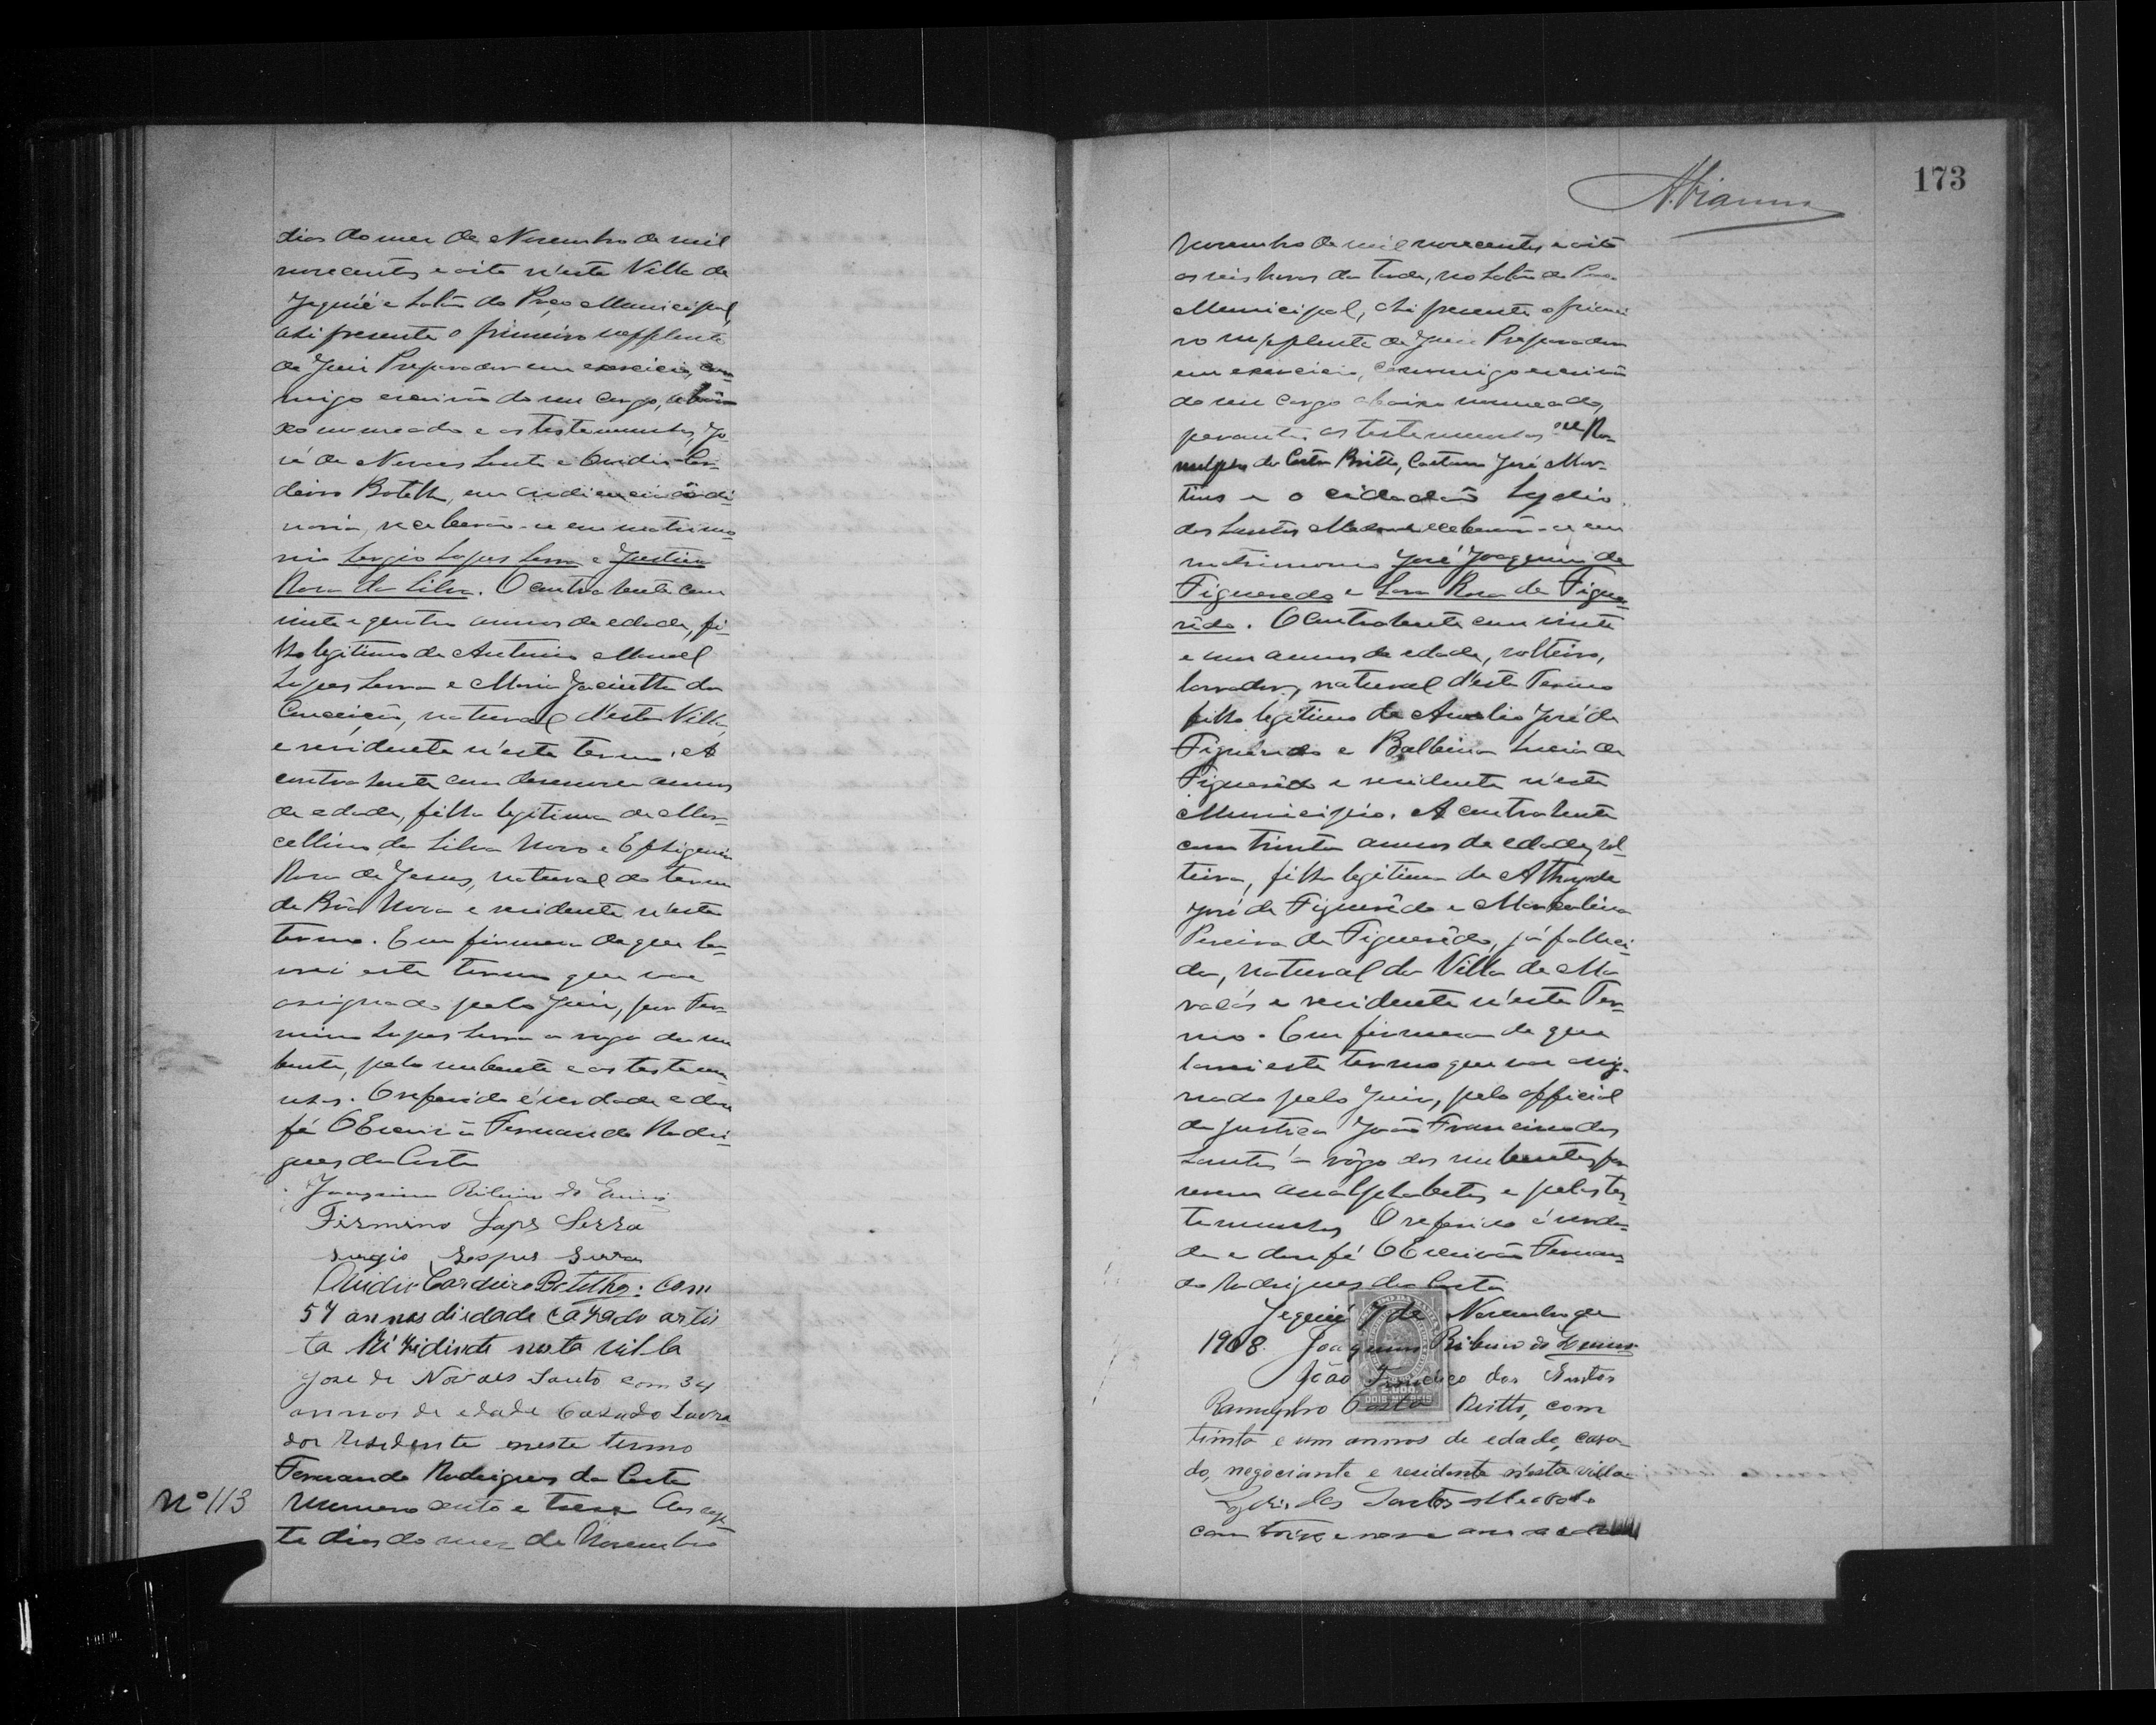 dias do mez de Novembro de mil
novecentos e oito n'esta Villa de
Jequié e Salão do Paço Municipal,
ahi presente o primeiro supplente
de Juiz Preparador em exercicio, com-
migo escrivão do seu cargo, abai-
xo nomeado e as testemunhas, Jo-
sé de Novaes Santo e Ovidio Cor-
deiro Botelho, em audiencia ordi-
naria, receberão-se em matrimo-
nio Sergio Lopes Serra e Justina
Rosa da Silva. O contrahente com
vinte e quatro annos de edade, fi-
lho legitimo de Antonio Manoel
Lopes Serra e Maria Jacintha da
Conceição, natural d'esta Villa,
e residente n'este termo. A
contrahente com desenove annos
de edade, filha legitima de Mar-
cellino da Silva Novo e Ephigenia
Rosa de Jesus, natural do termo
de Bôa Nova e residente n'este
termo. Em firmesa do que la-
vrei este termo que vae
assignado pelo Juiz, por Fer-
mino Lopes Serra a rogo da nu-
bente, pelo nubente e as testemu-
nhas. O referido é verdade e dou
fé O Escrivão Fernando Rodri-
gues da Costa
Joaquim Ribeiro de
Firmino Lopes Serra
Sergio Lospes Serra
Ovidio Cordeiro Botelho: com
57 annos diedade cazado artis
ta Rizidinte nesta villa
José de Novaes Santo com 34
annos de edade Cazado Lavra
dor residente neste termo
Fernando Rodrigues da Costa
Nº 113
Numero cento e treze Aos sete
te dias do mez de Novembro
173
A. Vianna
Novembro de mil novecentos e oito
as seis horas da tarde, no Salão do Paço
Municipal, ahi presente o primei
ro supplente de Juiz Preparador
em exercicio, commigo escrivão
do seu cargo abaixo nomeado,
perante as testemunhas Ra-
mulpho da Costa Britto, Caetano José Mar-
tins e o cidadão Lydio
dos Santos receberão-se em
matrimonio José Joaquim de
Figueredo e Rosa de Figue-
rêdo. O Contrahente com vinte
e um annos de edade, solteiro,
lavrador, natural d'este Termo
filho legitimo de José de
Figuerêdo e Balbina Lucia de
Figuerêdo e residente n'este
Municipio. A contrahente
com trinta annos de edade, sol-
teira, filha legitima de Athayde
José de Figuerêdo e
Pereira de Figuerêdo, já falleci-
da, natural da Villa de Ma-
racás e residente n'este Ter-
mo. Em firmesa do que
lavrei este termo que vae assig-
nado pelo Juiz, pelo official
de justiça João Francisco dos
Santos a rôgo dos nubentes por
serem analphabetos e pelas tes
temunhas O referido é verda-
de e dou fé O Escrivão Fernan-
do Rodrigues da Costa
Jequié 7 de Novembro de
1908. Joaquim Ribeiro de
João Francisco dos Santos
2.000
DOIS MIL REIS
Costa Britto, com
trinta e um annos de edade, casa-
do, negociante e residente n'esta villa
dos Santos
com